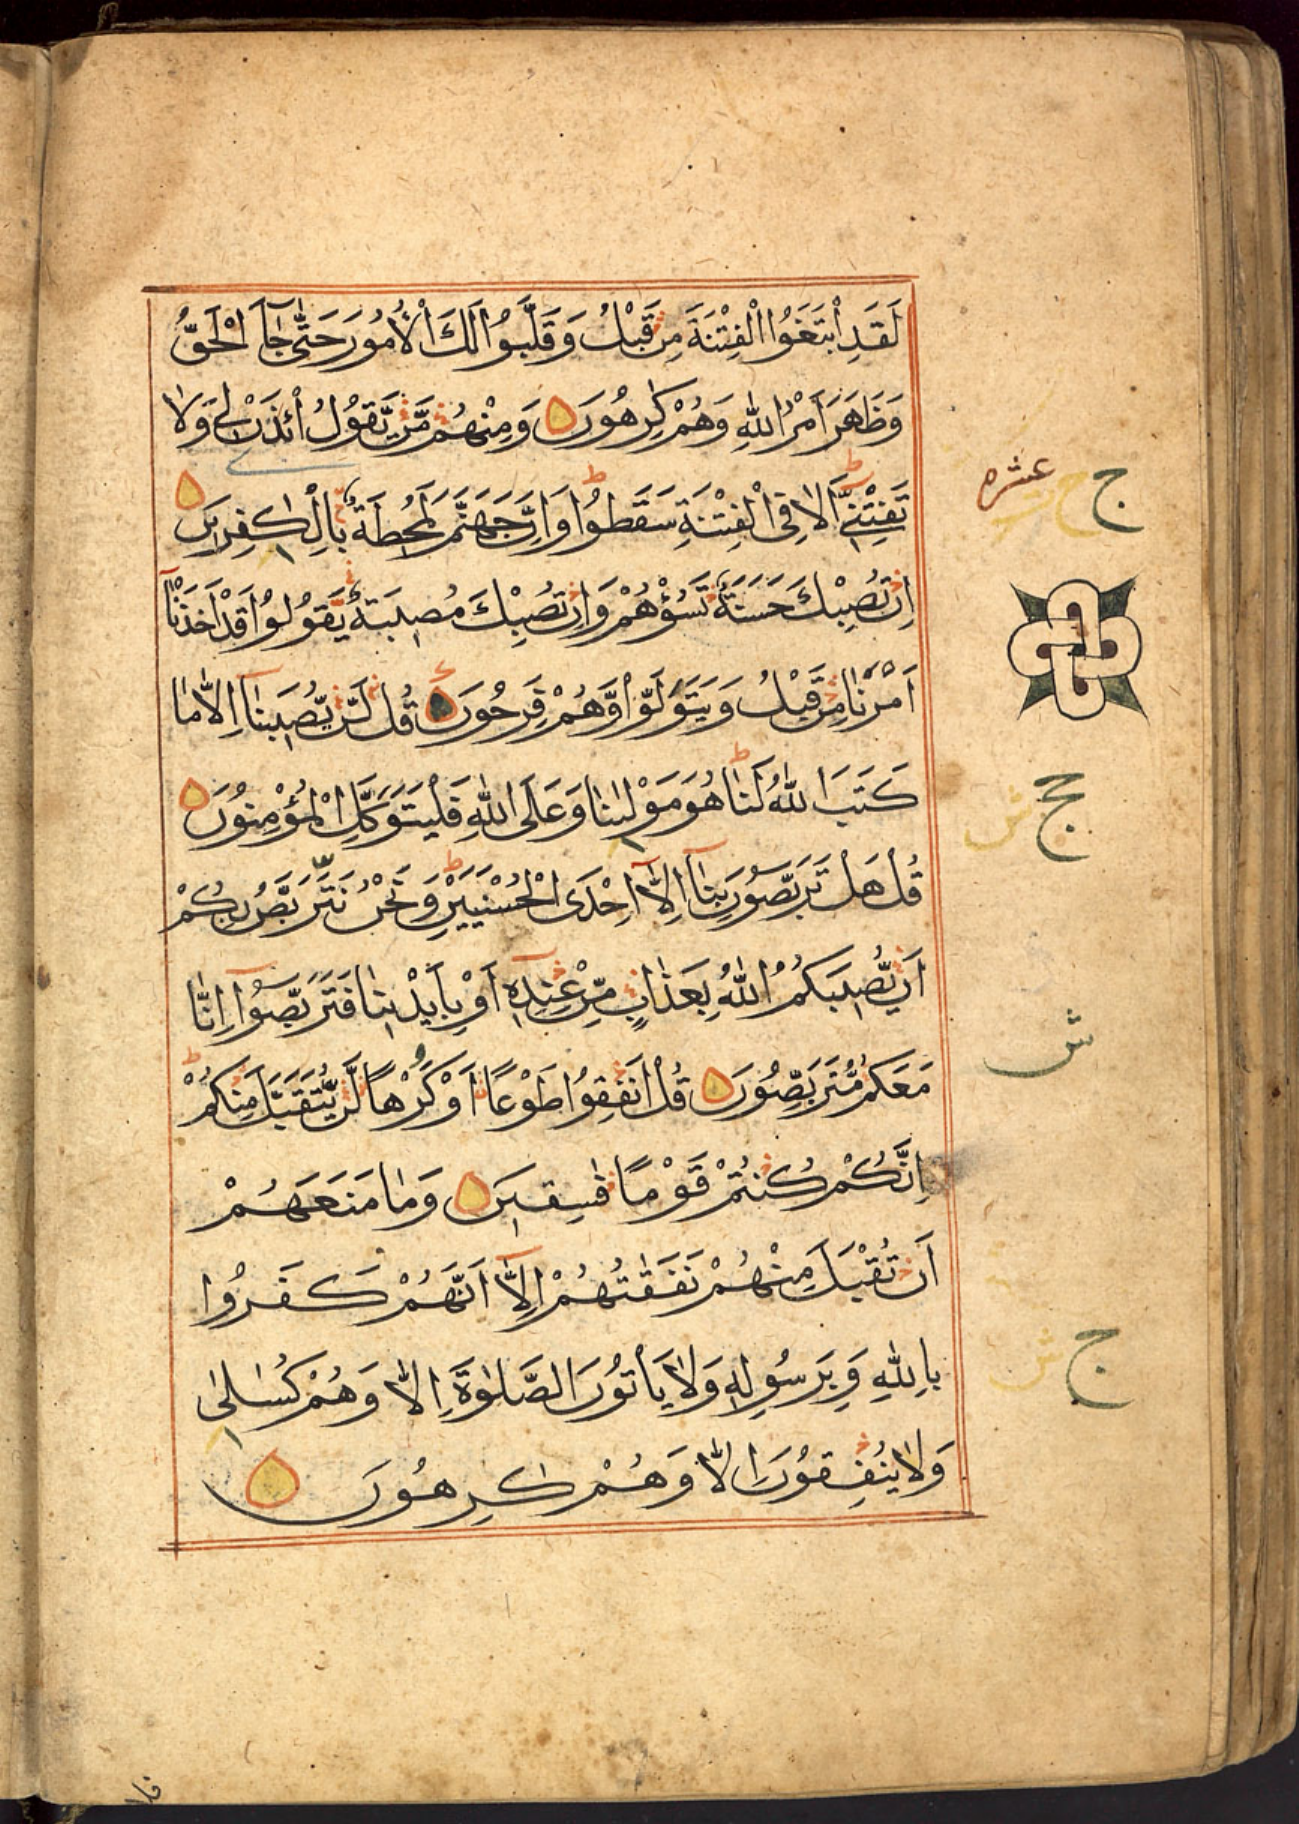 لَقَدِ ابْتَغَوُا الْفِتْنَةَ مِنْ قَبْلُ وَقَلَّبُوا لَكَ الْأُمُورَ حَتّٰى جَآءَ الْحَقُّ
وَظَهَرَ اَمْرُ اللّٰهِ وَهُمْ كٰرِهُونَ وَمِنْهُمْ مَّنْ يَّقُولُ ائْذَنْ لِي وَلَا
تَفْتِنِّيٓ اَلَا فِي الْفِتْنَةِ سَقَطُوا وَاِنَّ جَهَنَّمَ لَمُحِيطَةٌ بِالْكٰفِرِينَ
اِنْ تُصِبْكَ حَسَنَةٌ تَسُؤْهُمْ وَاِنْ تُصِبْكَ مُصِيبَةٌ يَّقُولُوا قَدْ اَخَذْنَآ
اَمْرَنَا مِنْ قَبْلُ وَيَتَوَلَّوْا وَّهُمْ فَرِحُونَ قُلْ لَّنْ يُّصِيبَنَآ اِلَّا مَا
كَتَبَ اللّٰهُ لَنَا هُوَ مَوْلٰىنَا وَعَلَى اللّٰهِ فَلْيَتَوَكَّلِ الْمُؤْمِنُونَ
قُلْ هَلْ تَرَبَّصُونَ بِنَآ اِلَّآ اِحْدَى الْحُسْنَيَيْنِ وَنَحْنُ نَتَرَبَّصُ بِكُمْ
اَنْ يُّصِيبَكُمُ اللّٰهُ بِعَذَابٍ مِّنْ عِنْدِهٓ اَوْ بِاَيْدِينَا فَتَرَبَّصُوٓا اِنَّا
مَعَكُمْ مُّتَرَبِّصُونَ قُلْ اَنْفِقُوا طَوْعًا اَوْ كَرْهًا لَّنْ يُّتَقَبَّلَ مِنْكُمْ
اِنَّكُمْ كُنْتُمْ قَوْمًا فٰسِقِينَ وَمَا مَنَعَهُمْ
اَنْ تُقْبَلَ مِنْهُمْ نَفَقٰتُهُمْ اِلَّآ اَنَّهُمْ كَفَرُوا
بِاللّٰهِ وَبِرَسُولِهِ وَلَا يَاْتُونَ الصَّلٰوةَ اِلَّا وَهُمْ كُسَالٰى
وَلَا يُنْفِقُونَ اِلَّا وَهُمْ كٰرِهُونَ
عشره
ج
ج
ش
ش
ج
ش
فلا